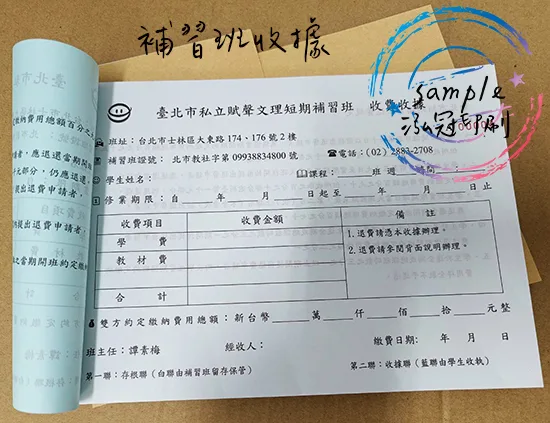 補習班收據
sample
泓冠印刷
臺北市私立賦聲文理短期補習班 收費收據
班址：台北市士林區大東路174、176號2樓
補習班證號： 北市教社字第09938834800號 ☎電話：(02) 2883-2708
學生姓名： 課程： 班 週 時間
修業期限：自 年 月 日起至 年 月 日止
收費項目 收費金額 備註
學費 1.退費請憑本收據辦理。
教材費 2.退費請參閱背面說明辦理。
合計
雙方約定繳納費用總額：新台幣 萬 仟 佰 拾 元整
班主任：譚素梅 經收人： 繳費日期： 年 月 日
第一聯：存根聯（白聯由補習班留存保管） 第二聯：收據聯（藍聯由學生收執）
繳納費用總額百分之
者，應退還當期開班
元部分，仍應退還
提出退費申請者，
提出退費申請者，
之當期開班約定繳